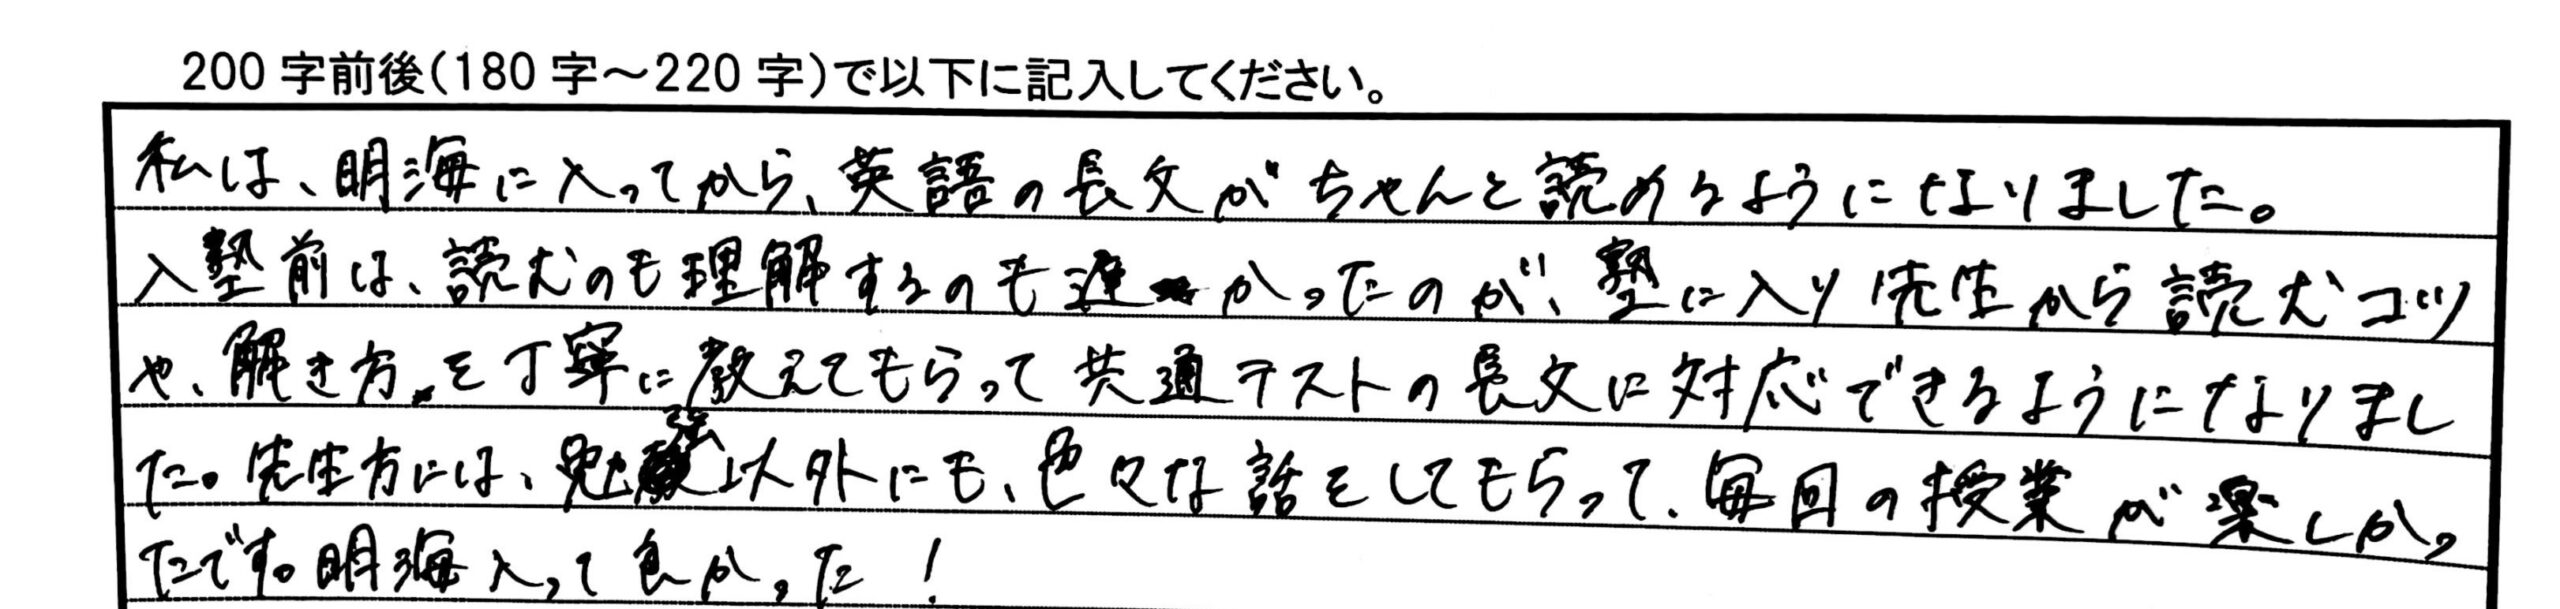 200字前後(180字～220字)で以下に記入してください。
私は、明海に入ってから、英語の長文がちゃんと読めるようになりました。
入塾前は、読むのも理解するのも遅かったのが、塾に入り先生から読むコツ
や、解き方を丁寧に教えてもらって共通テストの長文に対応できるようになりまし
た。先生方には、勉強以外にも、色々な話をしてもらって、毎回の授業が楽しかっ
たです。明海入って良かった！